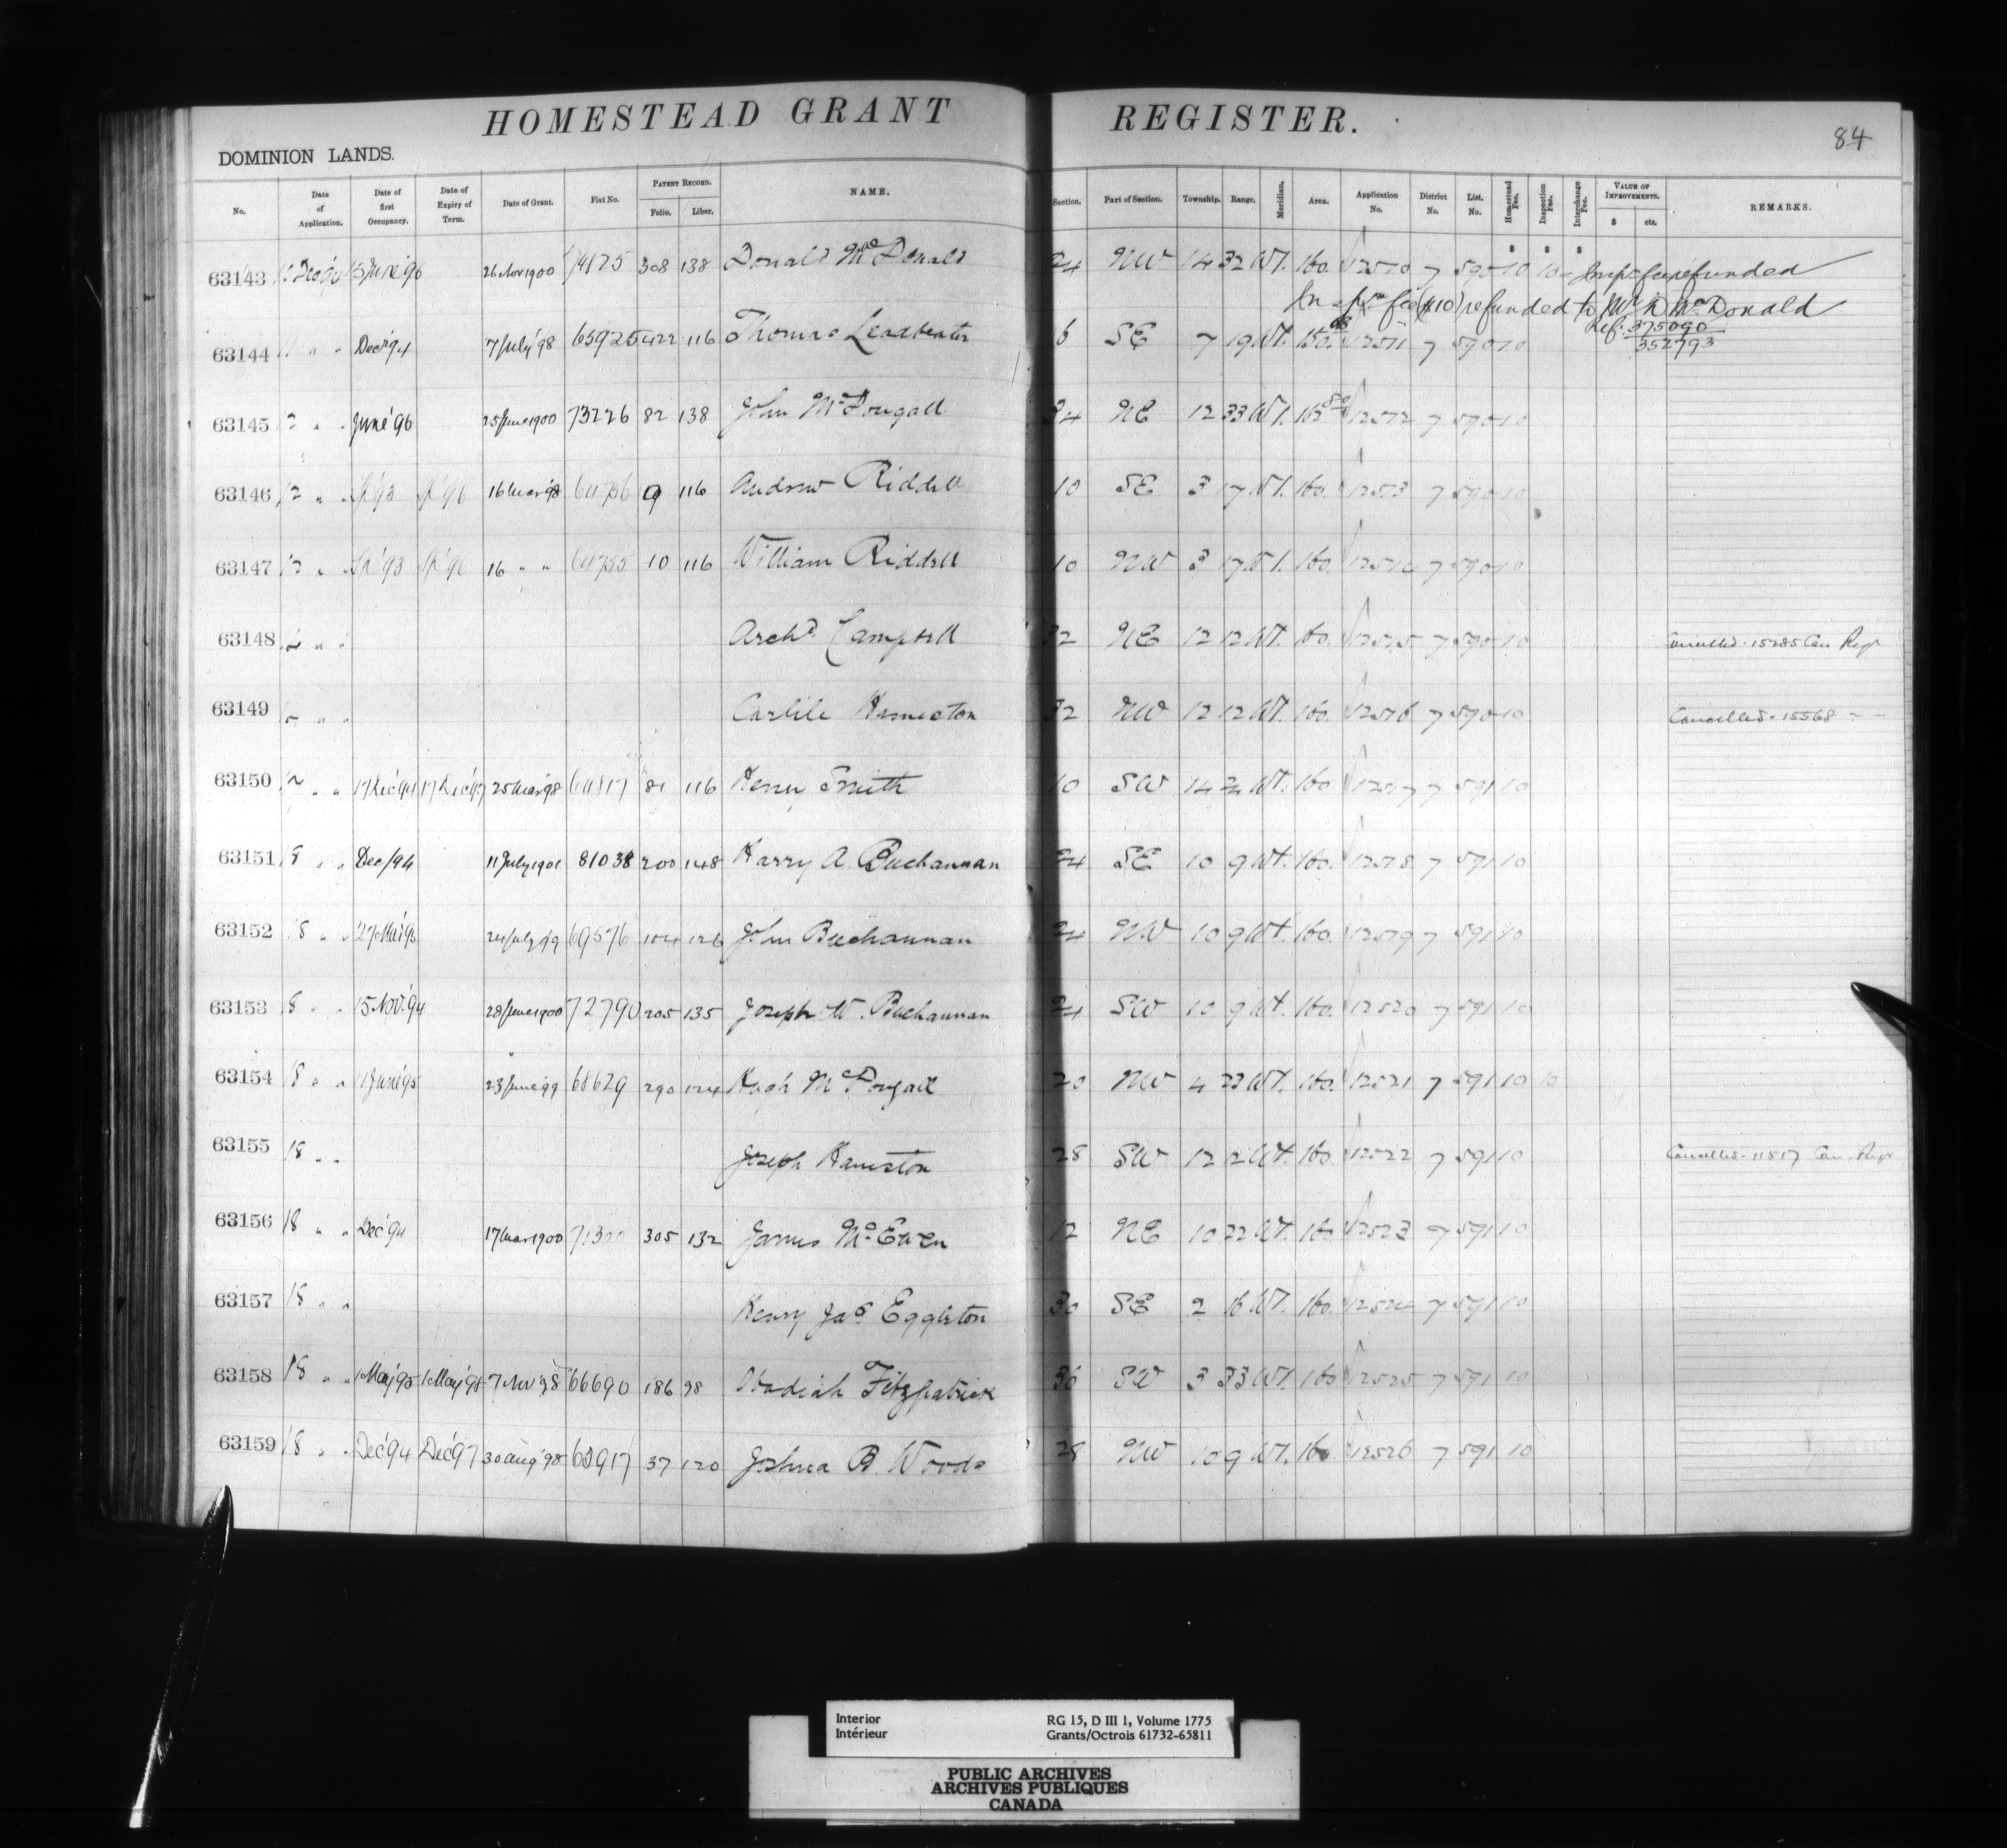 HOMESTEAD GRANT REGISTER.
84
DOMINION LANDS.
No. Date of Application. Date of first Occupancy. Date of Expiry of Term. Date of Grant. Fiat No. PATENT RECORD. Folio. Liber. NAME. Section. Part of Section. Township. Range. Meridian. Area. Application No. District No. List. No. Homestead Fee. Inspection Fee. Interchange Fee. VALUE OF IMPROVEMENTS. $ cts. REMARKS.
$ $ $
63143 26 Nov 1900 74125 308 138 Donald McDonald 24 NW 14 32 W1. 160. 12510 7 590 10 10 Insp fee refunded
Inspn fee ($10) refunded to Mr D McDonald
63144 " " Dec '94 7 July '98 65925 422 116 Thomas Leadbeater 6 SE 7 19 W1. 12511 7 590 10 Ref. 375090
352793
63145 " " June '96 25 June 1900 73226 82 138 John McDougall 34 NE 12 33 W1. 12512 7 590 10
63146 12 " " 16 Mar '98 64756 9 116 Andrew Riddell 10 SE 3 17 W1. 160. 12513 7 590 10
63147 12 " " 16 " " 64755 10 116 William Riddell 10 NW 3 17 W1. 160. 12514 7 590 10
63148 " " Archd Campbell 32 NE 12 12 W1. 160. 12515 7 590 10 Cancelled. 15285 Can Regr
63149 " " Carlile Hamerton 32 NW 12 12 W1. 160. 12516 7 590 10 Cancelled. 15568 " "
63150 " " 17 Dec '94 17 Dec '97 25 Mar '98 64817 81 116 Henry Smith 10 SW 14 W1. 160 12517 7 591 10
63151 18 " " Dec/94 11 July 1901 81038 200 148 Harry A. Buchannan 24 SE 10 9 W1. 160. 12518 7 591 10
63152 18 " " 27 Mar '95 24 July '99 69576 104 126 John Buchannan 24 NW 10 9 W1. 160. 12519 7 591 10
63153 18 " " 15 Nov. '94 28 June 1900 72790 205 135 Joseph W. Buchannan 24 SW 10 9 W1. 160. 12520 7 591 10
63154 18 " " 11 June '95 23 June '99 68629 290 124 Hugh McDougall 20 NW 4 22 W1. 160. 12521 7 591 10 10
63155 18 " " Joseph Hamerton 28 SW 12 12 W1. 160 12522 7 591 10 Cancelled. 11517 Can. Regr
63156 18 " " Dec '94 17 Mar 1900 305 132 James McEwen 12 NE 10 22 W1. 160. 12523 7 591 10
63157 18 " " Henry Jas Eggleton 30 SE 2 16 W1. 160. 12524 7 591 10
63158 18 " " 1 May '95 1 May '98 66690 186 98 Obadiah Fitzpatrick 36 SW 3 33 W1. 160 12525 7 591 10
63159 18 " " Dec '94 Dec '97 30 Aug '98 37 120 Joshua B. Woods 28 NW 10 9 W1. 160 12526 7 591 10
Interior RG 15, D III 1, Volume 1775
Intérieur Grants/Octrois 61732-65811
PUBLIC ARCHIVES
ARCHIVES PUBLIQUES
CANADA